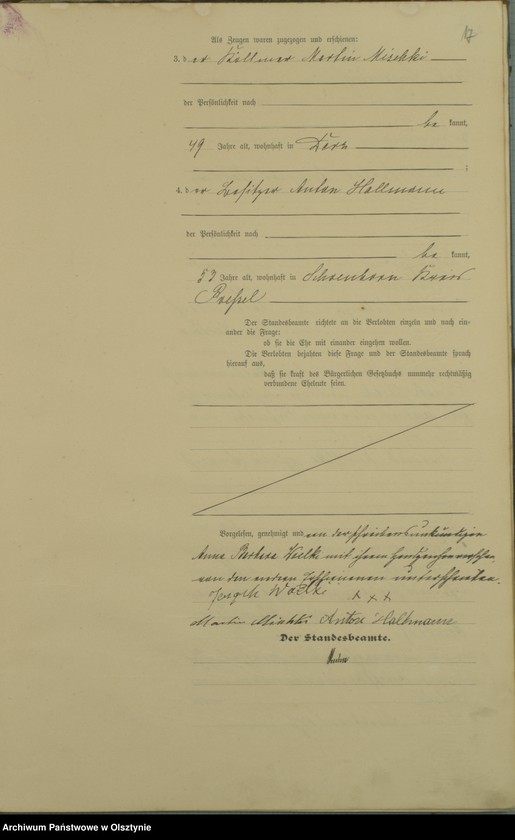 17
Als Zeugen waren zugezogen und erschienen:
3. der Kellner Martin Mischki
der Persönlichkeit nach
be kannt,
49 Jahre alt, wohnhaft in Derz
;
4. der Besitzer Anton Hallmann
der Persönlichkeit nach
be kannt,
53 Jahre alt, wohnhaft in Schoenborn Kreis
Roessel
Der Standesbeamte richtete an die Verlobten einzeln und nach ein-
ander die Frage:
ob sie die Ehe mit einander eingehen wollen.
Die Verlobten bejahten diese Frage und der Standesbeamte sprach
hierauf aus,
daß sie kraft des Bürgerlichen Gesetzbuchs nunmehr rechtmäßig
verbundene Eheleute seien.
Vorgelesen, genehmigt und von der schreibensunkundigen
Anna Barbara Wolki mit ihrem Handzeichen versehen
von den andern Personen unterschrieben.
Joseph Wolki xxx
Martin Mischki Anton Hallmann
Der Standesbeamte.
Archiwum Państwowe w Olsztynie